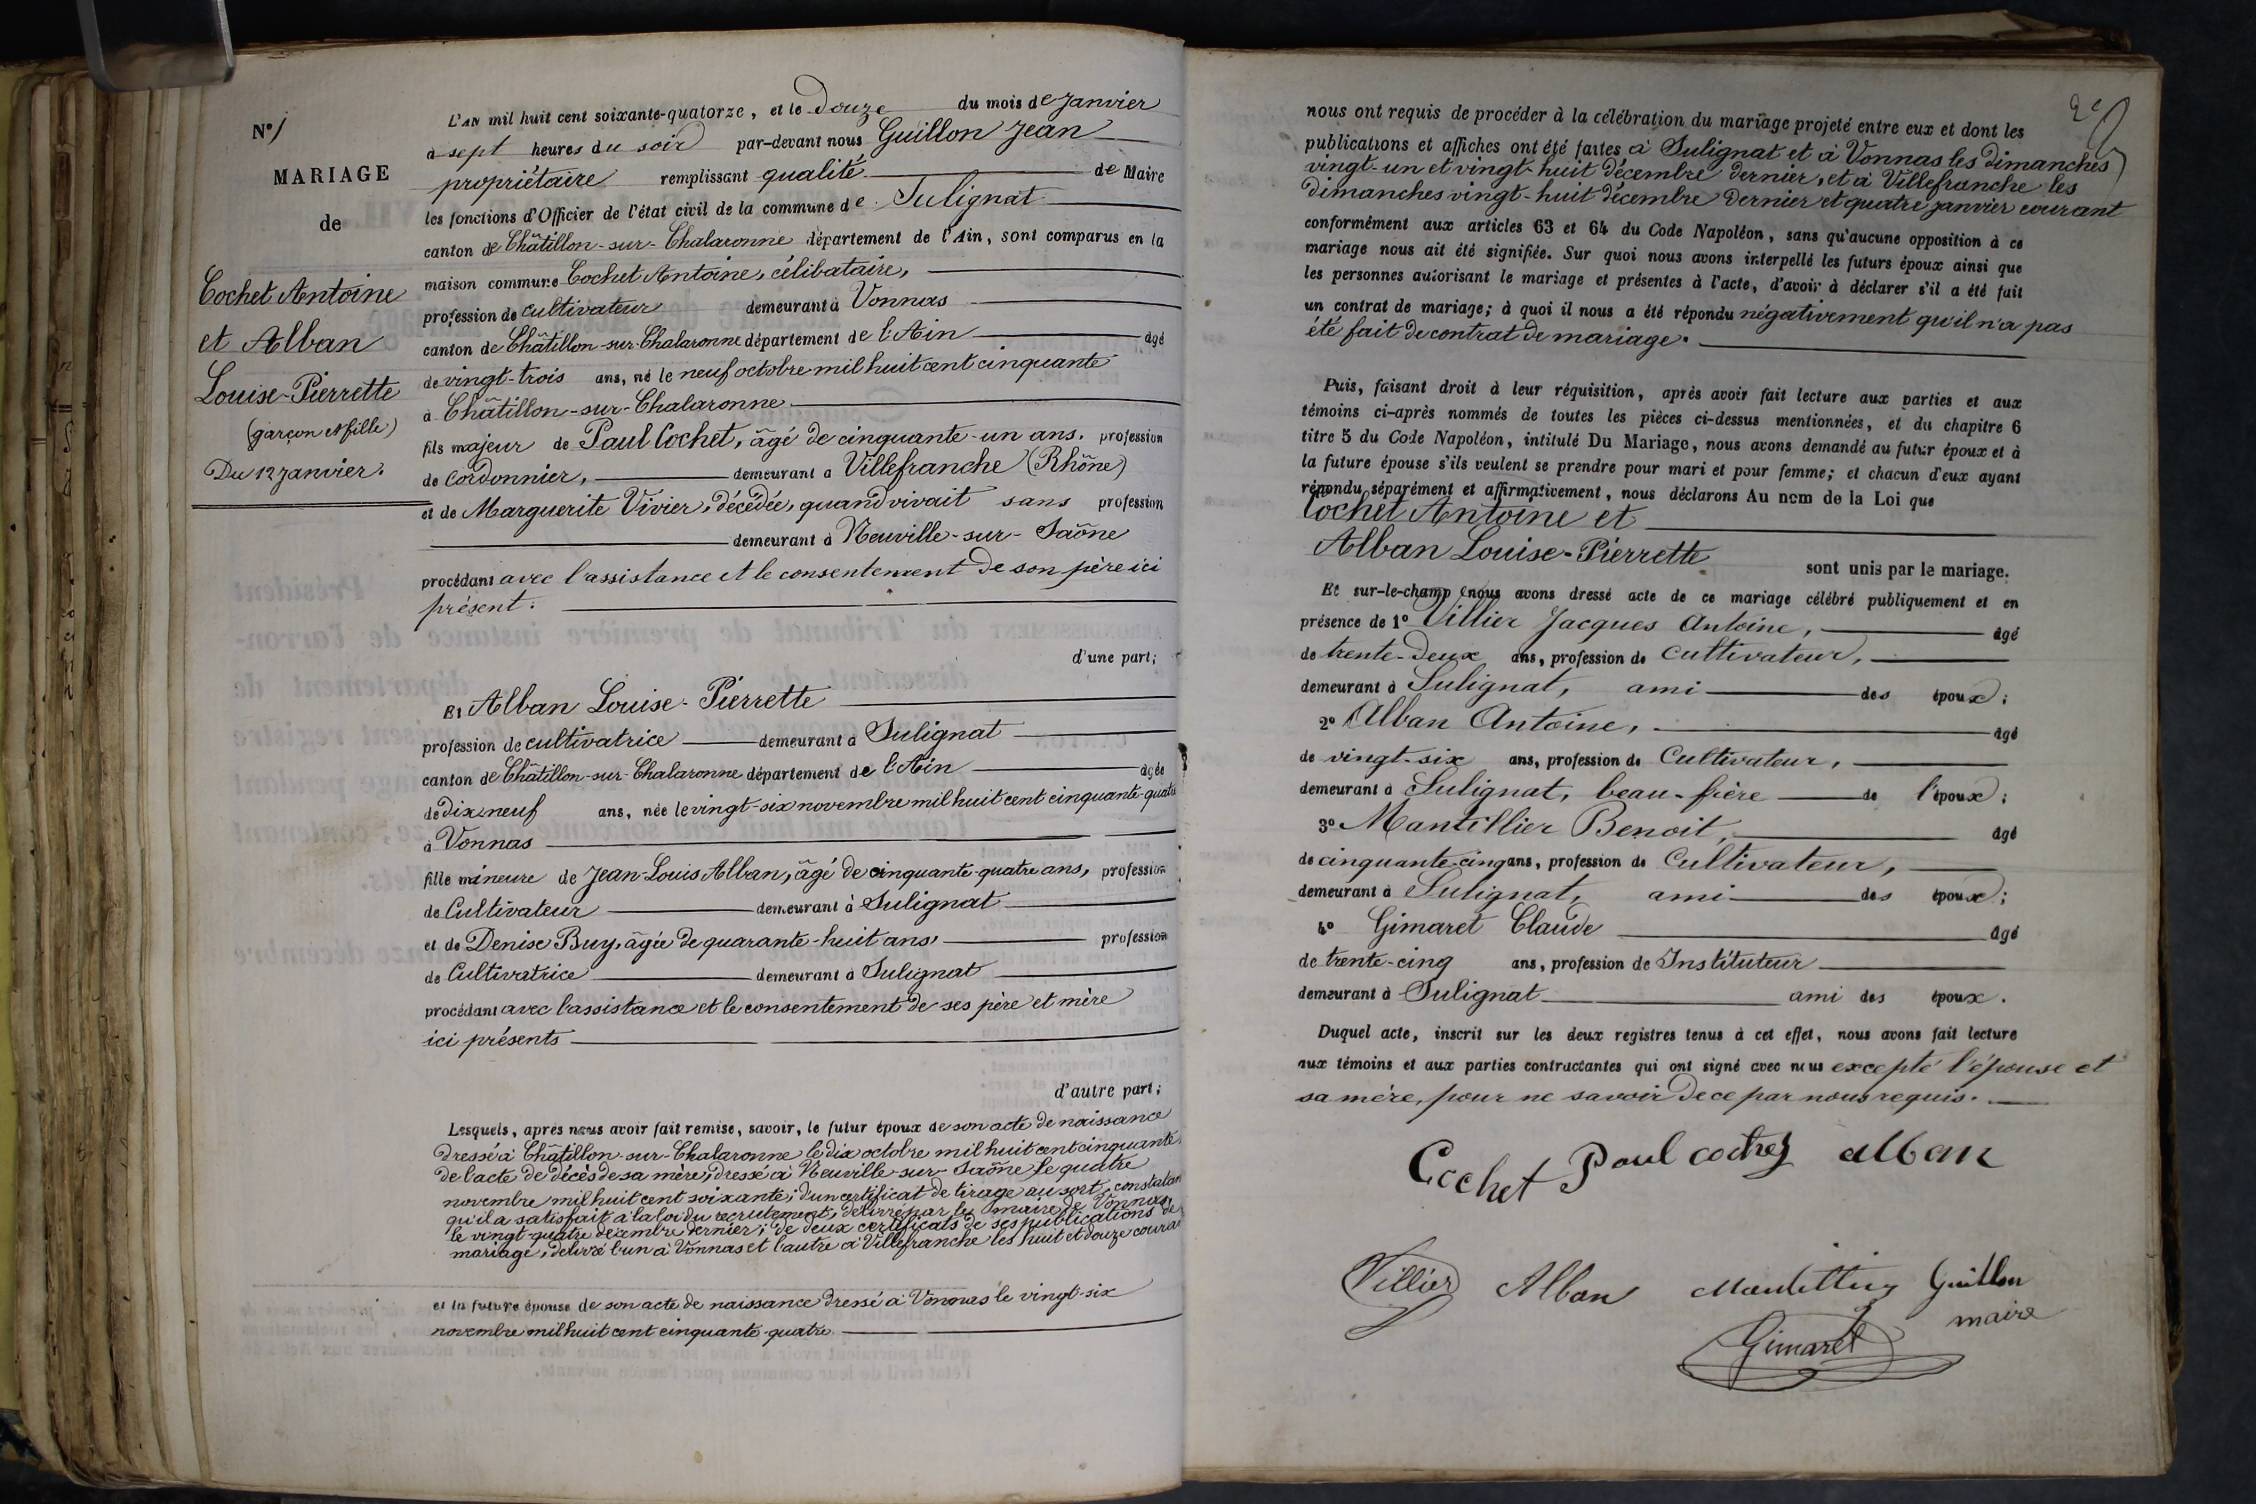 N° 1
MARIAGE
de
Cochet Antoine
et Alban
Louise-Pierrette
(garçon et fille)
Du 12 janvier.
L'AN mil huit cent soixante-quatorze, et le Douze du mois de Janvier
à sept heures du soir par-devant nous Guillon Jean
propriétaire remplissant qualité de Maire
les fonctions d'Officier de l'état civil de la commune de Sulignat
canton de Châtillon-sur-Chalaronne département de l'Ain, sont comparus en la
maison commune Cochet Antoine, célibataire,
profession de cultivateur demeurant à Vonnas
canton de Châtillon-sur-Chalaronne département de l'Ain agé
de vingt-trois ans, né le neuf octobre mil huit cent cinquante
à Châtillon-sur-Chalaronne
fils majeur de Paul Cochet, âgé de cinquante-un ans. profession
de Cordonnier, demeurant à Villefranche (Rhône)
et de Marguerite Vivier, décédée, quand vivait sans profession
demeurant à Neuville-sur-Saône
procédant avec l'assistance et le consentement de son père ici
présent.
d'une part;
Et Alban Louise-Pierrette
profession de cultivatrice demeurant à Sulignat
canton de Châtillon-sur-Chalaronne département de l'Ain agée
de dix neuf ans, née le vingt-six novembre mil huit cent cinquante-quatre
à Vonnas
fille mineure de Jean-Louis Alban, âgé de cinquante-quatre ans, profession
de Cultivateur demeurant à Sulignat
et de Denise Buy, âgée de quarante-huit ans, profession
de Cultivatrice demeurant à Sulignat
procédant avec l'assistance et le consentement de ses père et mère
ici présents
d'autre part;
Lesquels, après nous avoir fait remise, savoir, le futur époux de son acte de naissance
dressé à Châtillon-sur-Chalaronne le dix octobre mil huit cent cinquante.
de l'acte de décès de sa mère, dressé à Neuville-sur-Saône le quatre
novembre mil huit cent soixante; d'un certificat de tirage au sort, constatant
qu'il a satisfait à la loi du recrutement, délivré par le maire de Vonnas,
le vingt-quatre décembre dernier; de deux certificats de ses publications de
mariage, délivré l'un à Vonnas et l'autre à Villefranche les huit et douze courant
et la future épouse de son acte de naissance dressé à Vonnas le vingt-six
novembre mil huit cent cinquante-quatre
2e
nous ont requis de procéder à la célébration du mariage projeté entre eux et dont les
publications et affiches ont été faites à Sulignat et à Vonnas les dimanches
vingt-un et vingt-huit décembre dernier, et à Villefranche les
dimanches vingt-huit décembre dernier et quatre janvier courant
conformément aux articles 63 et 64 du Code Napoléon, sans qu'aucune opposition à ce
mariage nous ait été signifiée. Sur quoi nous avons interpellé les futurs époux ainsi que
les personnes autorisant le mariage et présentes à l'acte, d'avoir à déclarer s'il a été fait
un contrat de mariage; à quoi il nous a été répondu négativement qu'il n'a pas
été fait de contrat de mariage.
Puis, faisant droit à leur réquisition, après avoir fait lecture aux parties et aux
témoins ci-après nommés de toutes les pièces ci-dessus mentionnées, et du chapitre 6
titre 5 du Code Napoléon, intitulé Du Mariage, nous avons demandé au futur époux et à
la future épouse s'ils veulent se prendre pour mari et pour femme; et chacun d'eux ayant
répondu séparément et affirmativement, nous déclarons Au nom de la Loi que
Cochet Antoine et
Alban Louise-Pierrette
sont unis par le mariage.
Et sur-le-champ nous avons dressé acte de ce mariage célébré publiquement et en
présence de 1° Villier Jacques Antoine, agé
de trente-deux ans, profession de cultivateur,
demeurant à Sulignat, ami des époux;
2° Alban Antoine, agé
de vingt-six ans, profession de Cultivateur,
demeurant à Sulignat, beau-frère de l'époux;
3° Mantillier Benoit, agé
de cinquante-cinq ans, profession de Cultivateur,
demeurant à Sulignat, ami des époux;
4° Gimaret Claude agé
de trente-cinq ans, profession de Instituteur
demeurant à Sulignat ami des époux.
Duquel acte, inscrit sur les deux registres tenus à cet effet, nous avons fait lecture
aux témoins et aux parties contractantes qui ont signé avec nous excepté l'épouse et
sa mère, pour ne savoir de ce par nous requis.
Cochet Paul cochet alban
Villier Alban Mantillier Guillon
maire
Gimaret